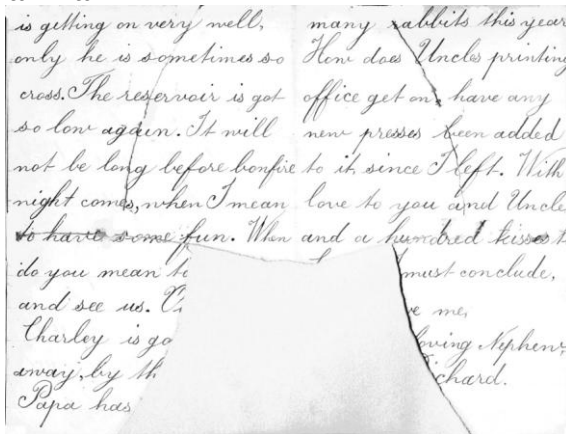 is getting on very well,
only he is sometimes so
cross. The reservoir is got
so low again. It will
not be long before bonfire
night comes, when I mean
to have some fun. When
do you mean to
and see us.
Charley is go
away, by th
Papa has
many rabbits this year
How does Uncles printing
office get on, have any
new presses been added
to it since I left. With
love to you and Uncle
and a hundred kisses t
must conclude,
ve me,
oving Nephew,
ichard.